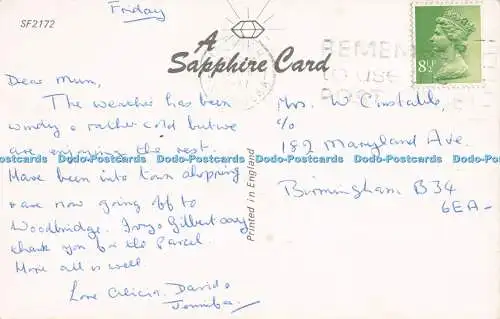 SF2172
Friday
A
Sapphire Card
REMEM
TO USE
POST
8½
Dear Mum,
The weather has been
windy & rather cold but we
are enjoying the rest.
Have been into town shopping
& are now going off to
Woodbridge. Gilbert say
thank you for the Parcel.
Hope all is well
Love David &
Printed in England
Mrs. W Constable,
c/o
182 Maryland Ave.
Birmingham B34
6EA-
Dodo-Postcards Dodo-Postcards Dodo-Postcards Dodo-Postcards Dodo-Postcards